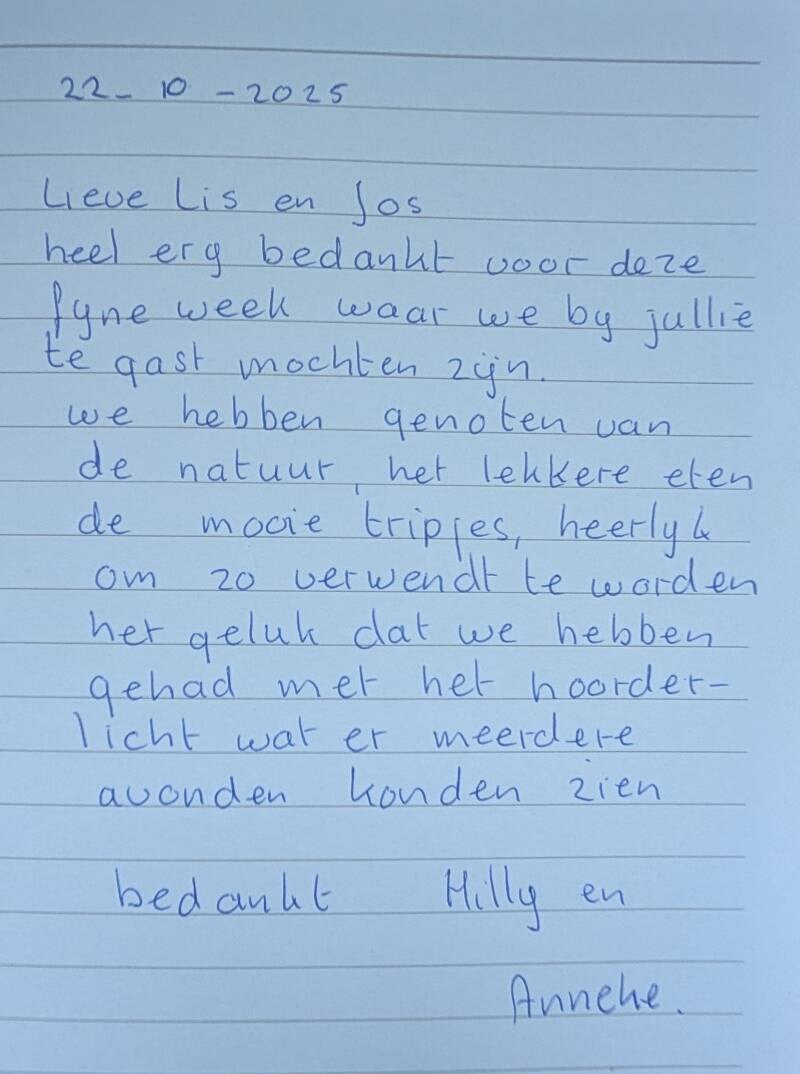 22-10-2025
Lieve Lis en Jos
heel erg bedankt voor deze
fyne week waar we by jullie
te gast mochten zijn.
we hebben genoten van
de natuur, het lekkere eten
de mooie tripjes, heerlyk
om zo verwendt te worden
het geluk dat we hebben
gehad met het noorder-
licht wat er meerdere
avonden konden zien
bedankt Hilly en
Anneke.